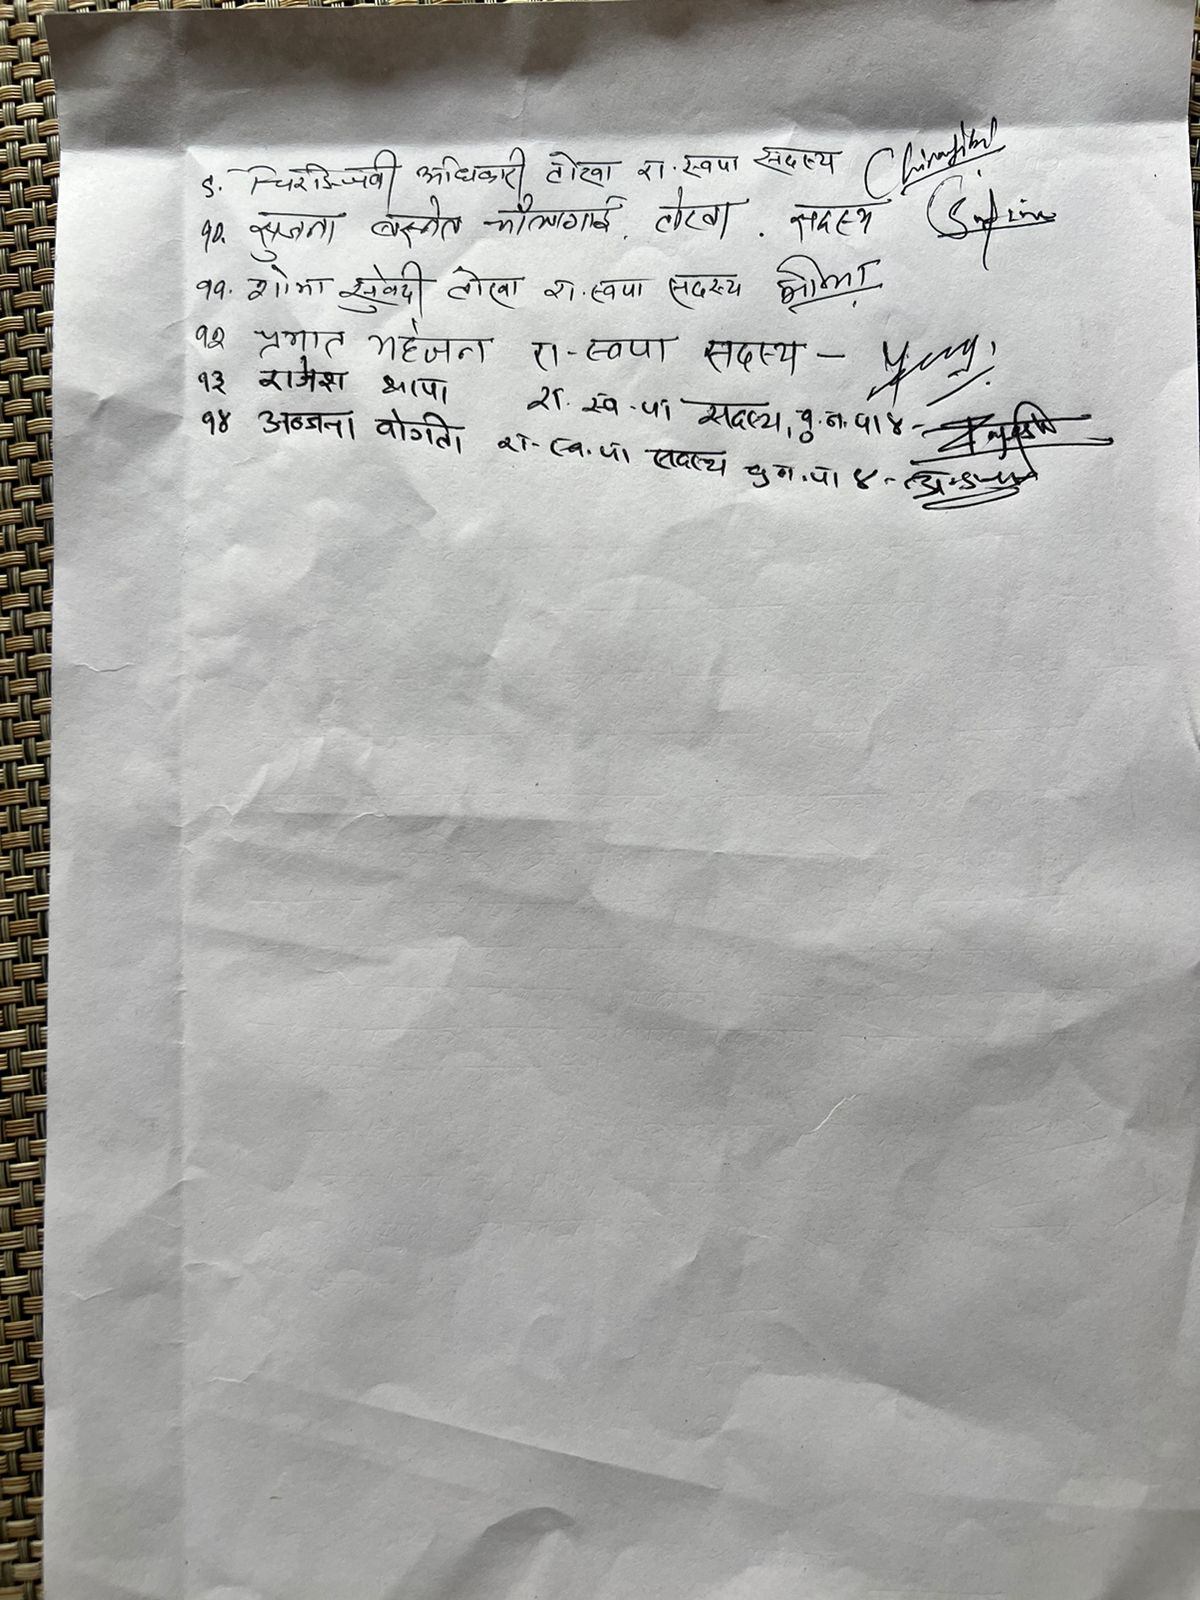 ९. चिरञ्जिवी अधिकारी टोखा रा.स्वपा सदस्य
१०. सुजना बस्नेत टोखा. सदस्य
११. शोभा सुवेदी टोखा रा.स्वपा सदस्य शोभा
१२ प्रभात महर्जन रा-स्वपा सदस्य -
१३ राजेश थापा रा. स्व-पा सदस्य, बु.न.पा ४ -
१४ अञ्जना वोगटी रा-स्व.पा सदस्य बु न.पा ४ -